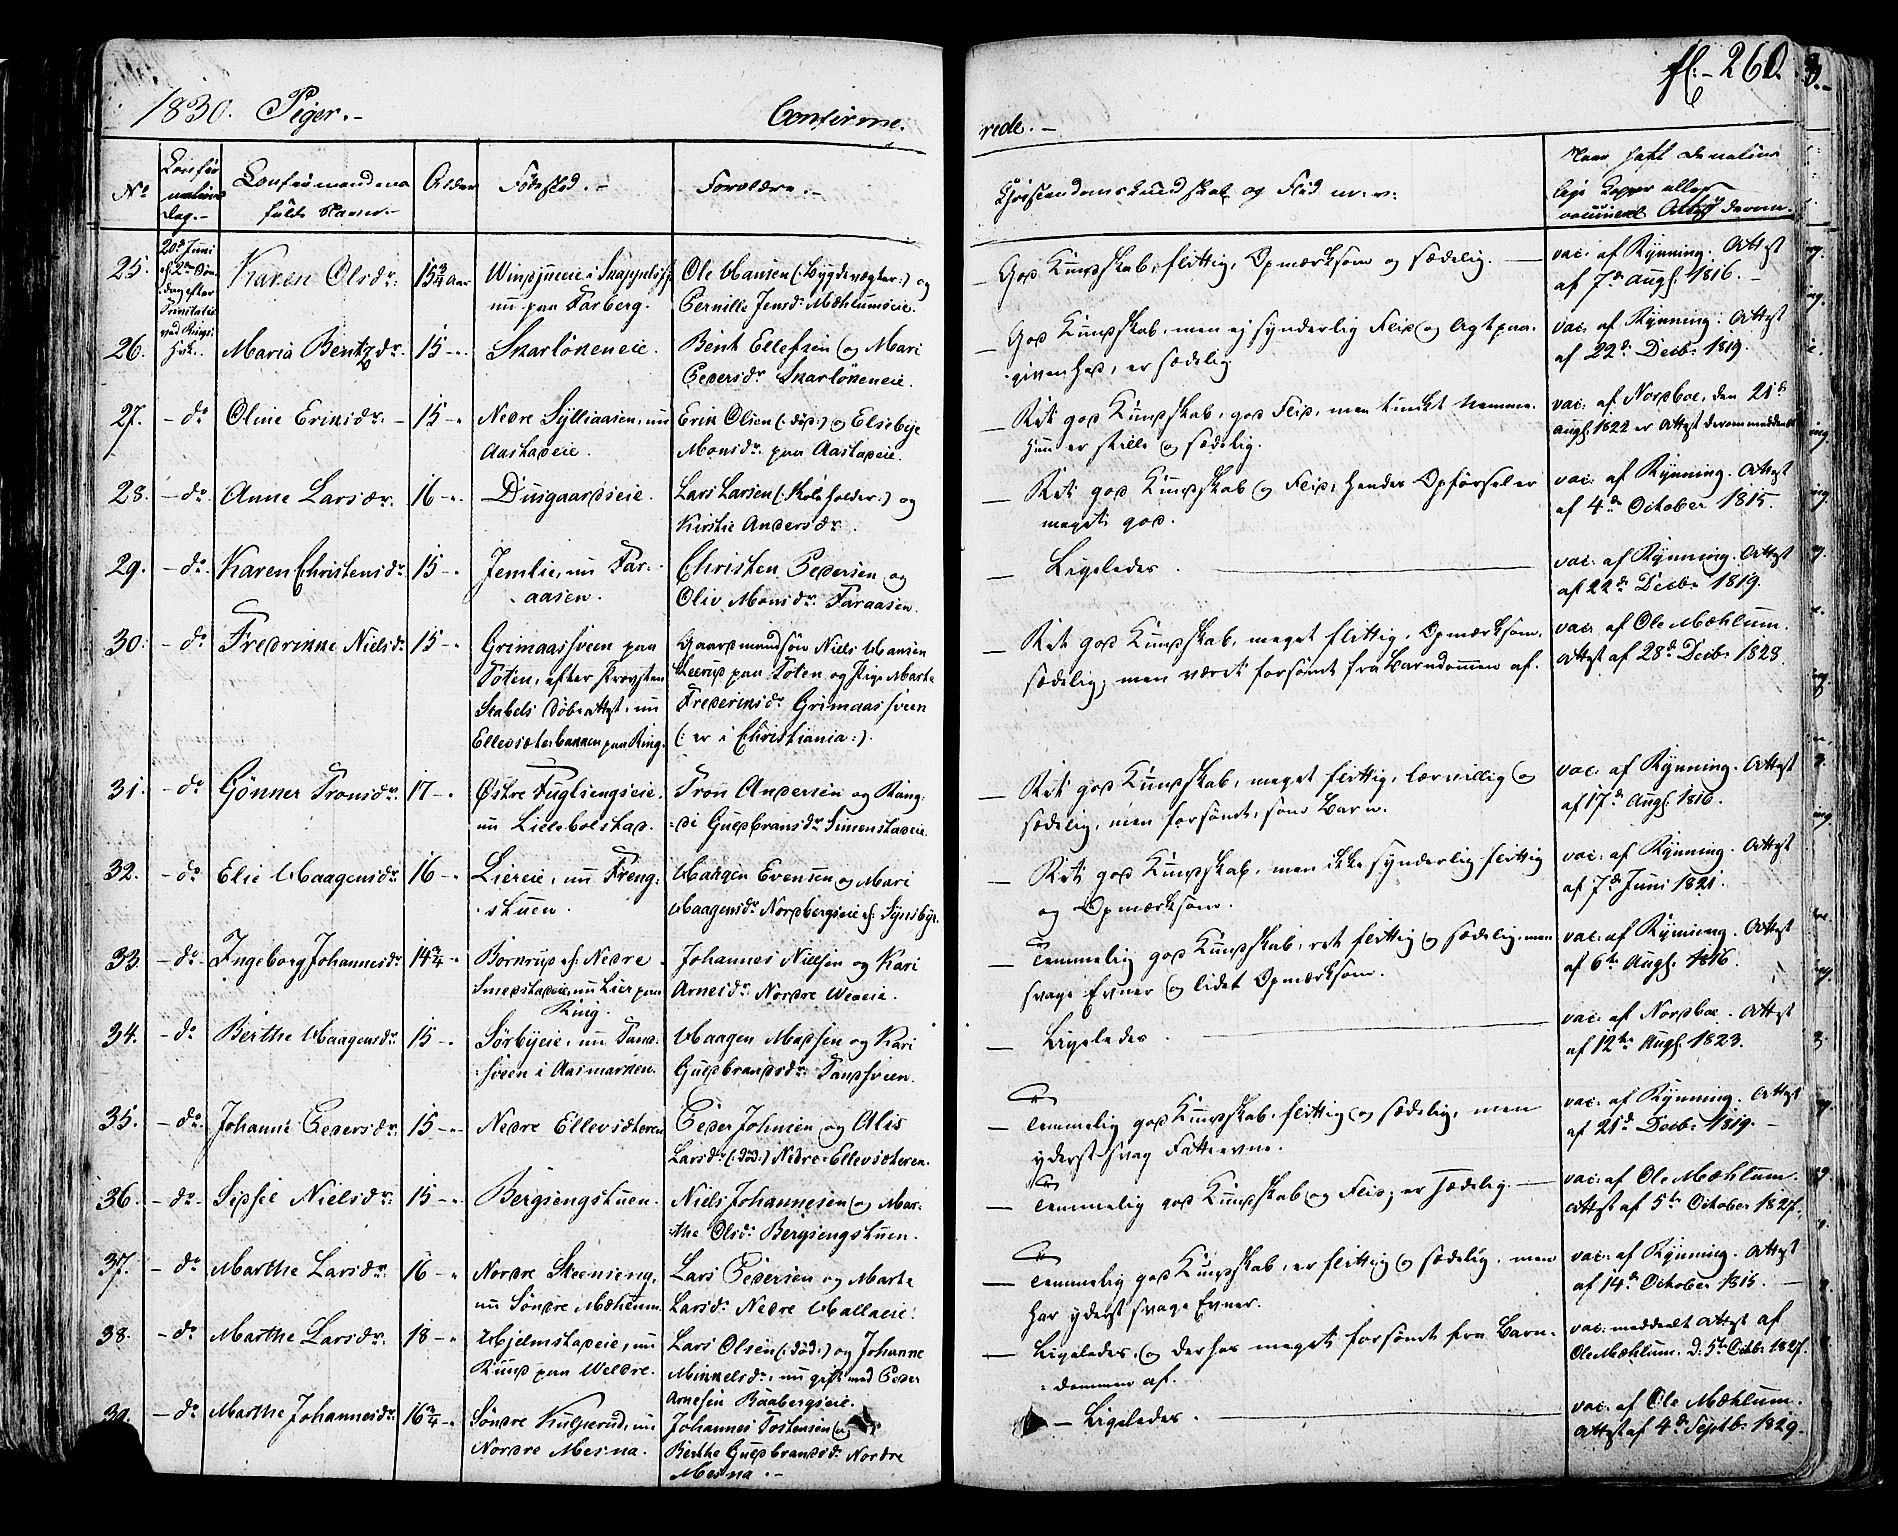 fl. 260.
1830. Piger.
Confirme-
rede.
No
Confir
mations
Dag.
Confirmandens
fulde Navn.
Alder
Fødested.
Forældre.
Christendomskundskab og Flid m. v.
Naar havt de natur-
lige Kopper eller
vaccineret Attest derom.
25.
20de Juni
2den Søn-
dag efter
Trinitatis
ved Rings.
Kirk.
Karen Olsdr.
15 3/4 Aar
nu paa Farberg.
Ole Hansen (: Bygdevægter :) og
Pernille Jensdr. Mæhlumseie.
God Kundskab, flittig, Opmærksom og sædelig.
vac: af Rynning. Attest
af 7de Augs. 1816.
26.
Maria Bentsdr.
15
Skarlökeneie.
Bent Ellefsen og Mari
Pedersdr. Skarlökeneie.
God Kundskab, men ej synderlig Flid og Agtpaa-
givenhed, er sædelig
vac: af Rynning. Attest
af 22de Decbr. 1819.
27.
do
Oline Eriksdr.
15
Nedre Sylliaasen, nu
Aastadeie.
Erik Olsen (: död :) og Elsebye
Monsdr. paa Aastadeie.
Ret god Kundskab, god Flid, men tungt Nemme.
Hun er stille og sædelig.
vac: af Nordboe, den 21de
Augs. 1822 er Attest derom meddeelt
28.
do
Anne Larsdr.
16
Dusgaardseie.
Lars Larsen (: Skoleholder :) og
Kirstie Andersdr.
Ret god Kundskab og Flid, hendes Opførsel er
meget god.
vac: af Rynning. Attest
af 4de October 1815.
29.
do
Karen Christensdr.
15
Jemlie, nu Far-
aasen.
Christen Pedersen og
Oliv Monsdr. Faraasen.
Ligeledes.
vac: af Rynning. Attest
af 22de Decbr. 1819.
30.
do
Fredrikke Nielsdr.
15
Grimaassveen paa
Toten, efter Provsten
Stabels Döbeattest, nu
Ellevsæterbakken paa Ring.
Gaardmandsön Niels Hansen
paa Toten og Pige Marte
Frederiksdr. Grimaassveen
(: er i Christiania :).
Ret god Kundskab, meget flittig, Opmærksom,
sædelig; men været forsömt fra Barndommen af.
vac: af Ole Mæhlum.
Attest af 28de Decbr. 1828.
31.
do
Gönner Tronsdr.
17
Østre Fuglsengseie,
nu Lillebolstad.
Tron Andersen og Rang-
di Guldbransdr. Simenstadeie.
Ret god Kundskab, meget flittig, lærvillig og
sædelig, men forsömt, som Barn.
vac: af Rynning. Attest
af 17de Augs. 1816.
32.
do
Elie Haagensdr.
16
Liereie, nu Freng-
stuen.
Haagen Evensen og Mari
Haagensdr. Nordbergseie
Ret god Kundskab, men ikke synderlig flittig
og Opmærksom.
vac: af Rynning. Attest
af 7de Juni 1821.
33.
do
Ingeborg Johannesdr.
14 3/4
Bornrud Nedre
Smedstadeie, nu Lier paa
Ring.
Johannes Nielsen og Kari
Arnesdr. Nordre Weeie.
Temmelig god Kundskab, ret flittig og sædelig, men
svage Evner og lidet Opmærksom.
vac: af Rynning. Attest
af 6te Augs. 1816.
34.
do
Berthe Haagensdr.
15
Sörbyeie, nu Tand-
sveen i Aasmarken.
Haagen Madsen og Kari
Guldbransdr. Tandsveen.
Ligeledes.
vac: af Nordboe. Attest
af 12te Augs. 1823.
35.
do
Johanne Pedersdr.
15
Nedre Ellevsæteren
Peder Johnsen og Alis
Larsdr. (: död :) Nedre Ellevsæteren.
Temmelig god Kundskab, flittig og sædelig, men
yderst svag Fatteevne.
vac: af Rynning. Attest
af 21de Decbr. 1819.
36.
do
Sidsel Nielsdr.
15
Bergsengstuen.
Niels Johannesen og Mar-
the Olsdr. Bergsengstuen.
Temmelig god Kundskab og Flid; er sædelig.
vac: af Ole Mæhlum.
Attest af 5te October 1827.
37.
do
Marthe Larsdr.
16
Nordre Skeenseng,
nu Söndre Mæhlum.
Lars Pedersen og Marte
Larsdr. Nedre Hallaeie.
Temmelig god Kundskab, er flittig og sædelig, men
har yderst svage Evner.
vac: af Rynning. Attest
af 14de October 1815.
38.
do
Marthe Larsdr.
18
Hjelmstadeie, nu
Rund paa Weldre.
Lars Olsen (: död :) og Johanne
Mikkelsdr., nu gift med Peder
Arnesen Baabergseie.
Ligeledes, og derhos meget forsömt fra Barn-
dommen af.
vac: meddeelt Attest af
Ole Mæhlum. d. 5te Octbr. 1827.
39.
do
Marthe Johannesdr.
16 3/4
Söndre Kulperud, nu
Nordre Mesna.
Johannes Tostensen og
Berthe Guldbransdr. Nordre
Mesna.
Ligeledes.
vac: af Ole Mæhlum.
Attest af 4de Septbr. 1829.